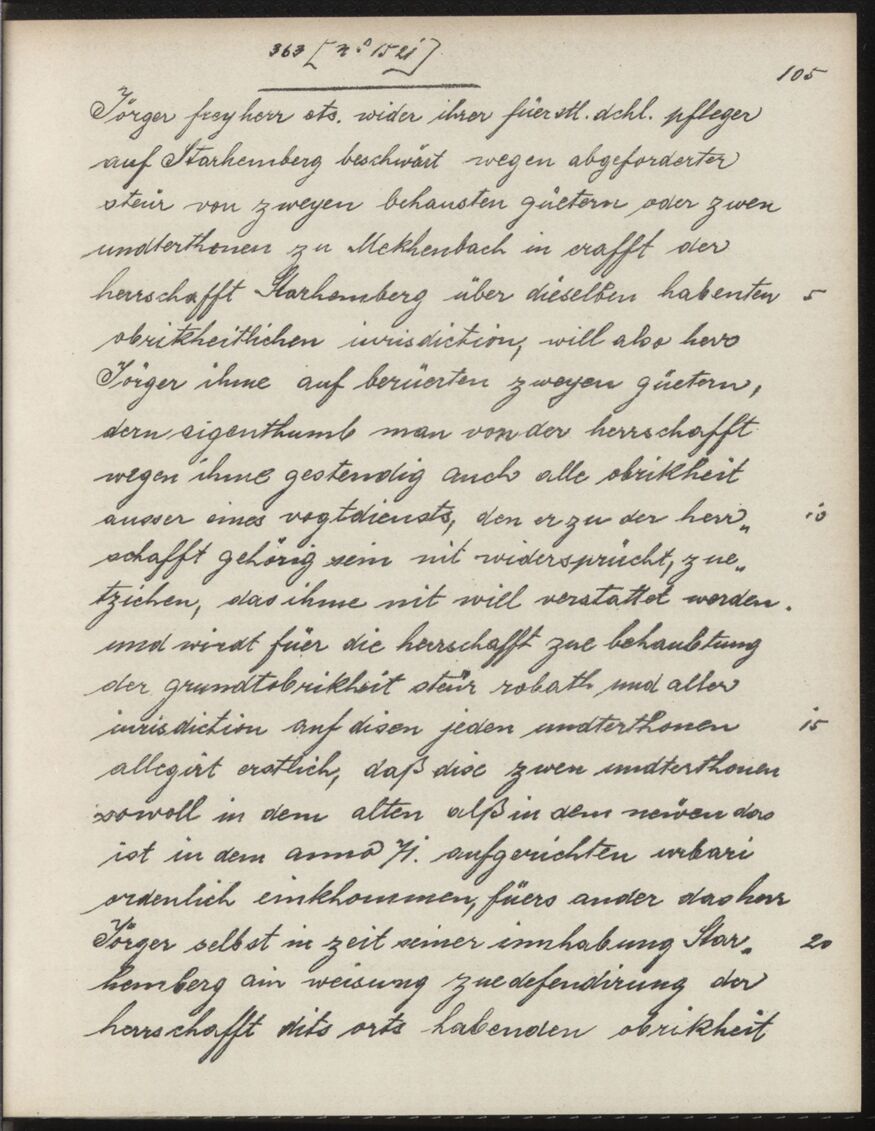 363 [n° 152i]
105
Jörger freyherr etc. wider ihrer füerstl. dchl. pfleger
auf Starhemberg beschwärt wegen abgeforderter
steür von zweyen behausten güetern oder zwen
undterthonen zu Mekhenbach in crafft der
herrschafft Starhemberg über dieselben habenten 5
obrikheitlichen iurisdiction, will also herr
Jörger ihme auf berüerten zweyen güetern,
dern aigenthumb man von der herrschafft
wegen ihme gestendig auch alle obrikheit
ausser eines vogtdiensts, den er zu der herr„ 10
schafft gehörig sein nit widersprücht, zue„
tziehen, das ihme nit will verstattet werden.
und wirdt füer die herrschafft zue behaubtung
der grundtobrikheit steür robath und aller
iurisdiction auf disen jeden undterthonen 15
allegirt erstlich, daß dise zwen undterthonen
sowoll in dem alten alß in dem neüen das
ist in dem anno 71. aufgerichten urbari
ordenlich einkhommen, füers ander das herr
Jörger selbst in zeit seiner innhabung Star„ 20
hemberg ain weisung zue defendirung der
herrschafft dits orts habenden obrikheit